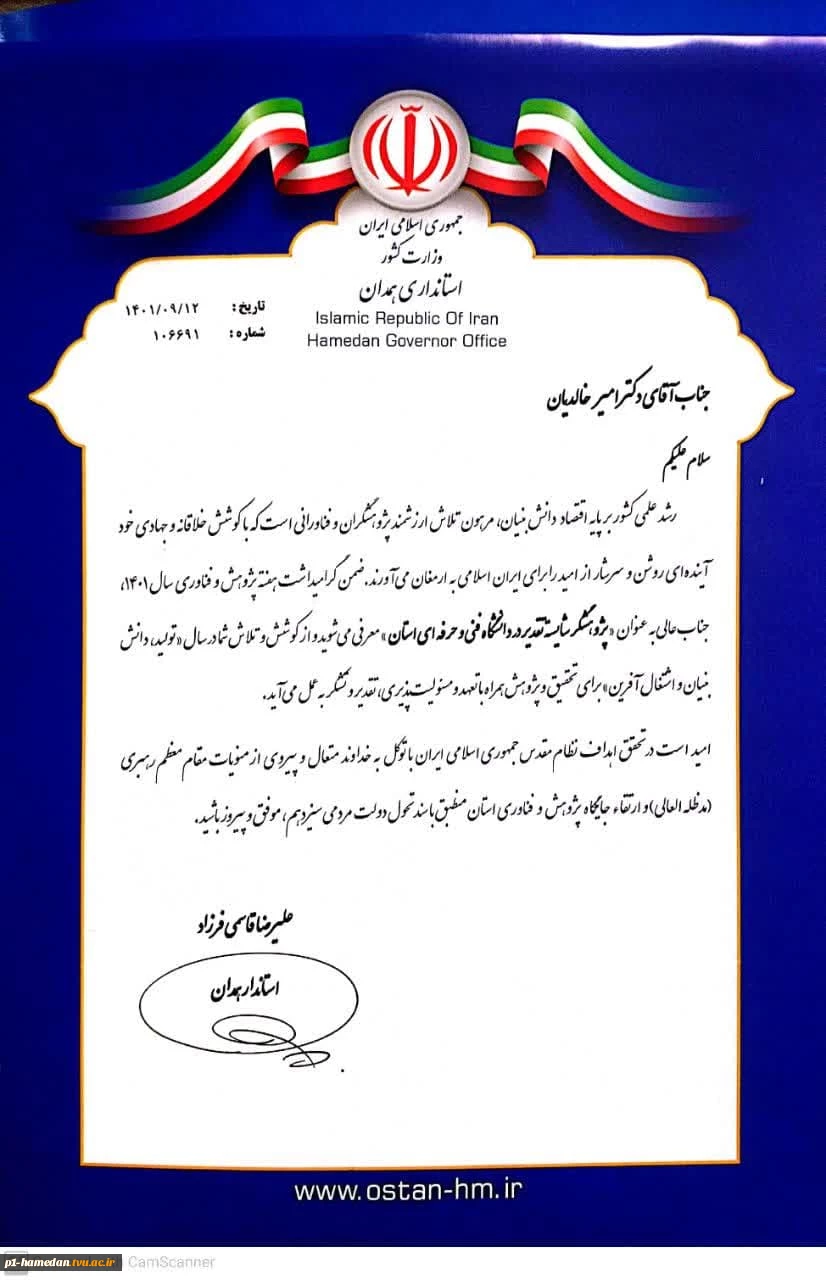 جمهوری اسلامی ایران
وزارت کشور
استانداری همدان
Islamic Republic Of Iran
Hamedan Governor Office
تاریخ: ۱۴۰۱/۰۹/۱۲
شماره: ۱۰۶۶۹۱
جناب آقای دکتر امیر خالدیان
سلام علیکم
رشد علمی کشور بر پایه اقتصاد دانش بنیان، مرهون تلاش ارزشمند پژوهشگران و فناورانی است که با کوشش خلاقانه و جهادی خود
آینده‌ای روشن و سرشار از امید را برای ایران اسلامی به ارمغان می‌آورند. ضمن گرامیداشت هفته پژوهش و فناوری سال ۱۴۰۱،
جناب عالی به عنوان «پژوهشگر شایسته تقدیر در دانشگاه فنی و حرفه ای استان» معرفی می‌شوید و از کوشش و تلاش شما در سال «تولید، دانش
بنیان و اشتغال آفرین» برای تحقیق و پژوهش همراه با تعهد و مسئولیت پذیری، تقدیر و تشکر به عمل می‌آید.
امید است در تحقق اهداف نظام مقدس جمهوری اسلامی ایران با توکل به خداوند متعال و پیروی از منویات مقام معظم رهبری
(مدظله العالی) و ارتقاء جایگاه پژوهش و فناوری استان منطبق با سند تحول دولت مردمی سیزدهم، موفق و پیروز باشید.
علیرضا قاسمی فرزاد
استاندار همدان
www.ostan-hm.ir
p1-hamedan.tvu.ac.ir CamScanner